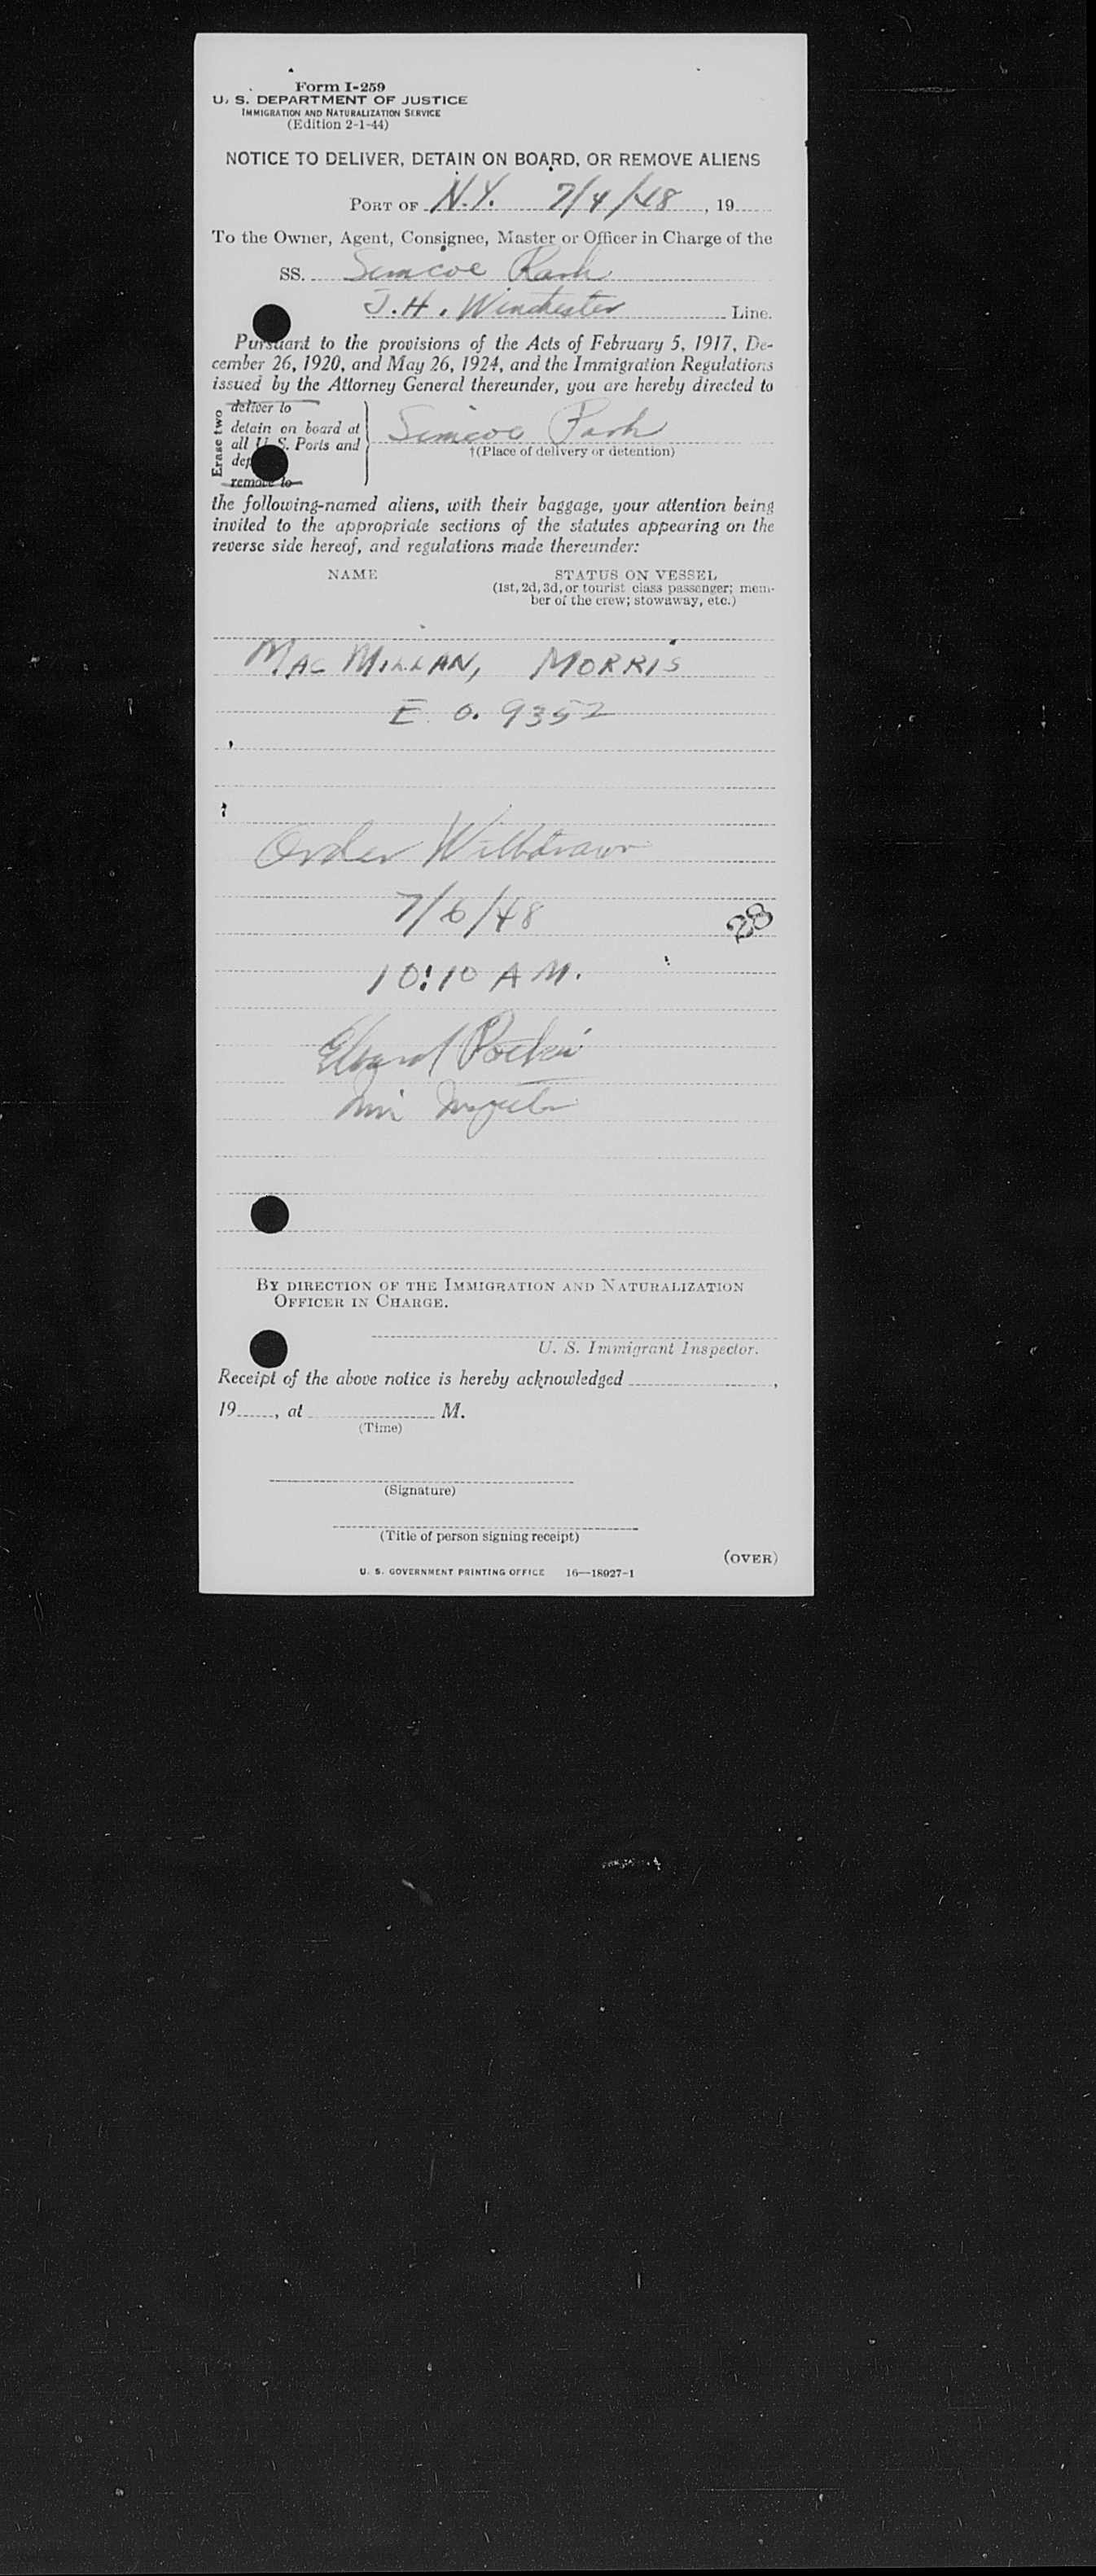 Form I-259
U. S. DEPARTMENT OF JUSTICE
IMMIGRATION AND NATURALIZATION SERVICE
(Edition 2-1-44)
NOTICE TO DELIVER, DETAIN ON BOARD, OR REMOVE ALIENS
PORT OF N.Y. 7/4/48, 19
To the Owner, Agent, Consignee, Master or Officer in Charge of the
SS. Simcoe Park
J.H. Winchester Line.
Pursuant to the provisions of the Acts of February 5, 1917, De-
cember 26, 1920, and May 26, 1924, and the Immigration Regulations
issued by the Attorney General thereunder, you are hereby directed to
Erase two
deliver to
detain on board at
all U. S. Ports and
remove to
Simcoe Park
†(Place of delivery or detention)
the following-named aliens, with their baggage, your attention being
invited to the appropriate sections of the statutes appearing on the
reverse side hereof, and regulations made thereunder:
NAME STATUS ON VESSEL
(1st, 2d, 3d, or tourist class passenger; mem-
ber of the crew; stowaway, etc.)
MAC MILLAN, MORRIS
E. O. 9352
Order Withdrawn
7/6/48
28
10:10 A M.
BY DIRECTION OF THE IMMIGRATION AND NATURALIZATION
OFFICER IN CHARGE.
U. S. Immigrant Inspector.
Receipt of the above notice is hereby acknowledged ,
19 , at M.
(Time)
(Signature)
(Title of person signing receipt)
(OVER)
U. S. GOVERNMENT PRINTING OFFICE 16—18927-1